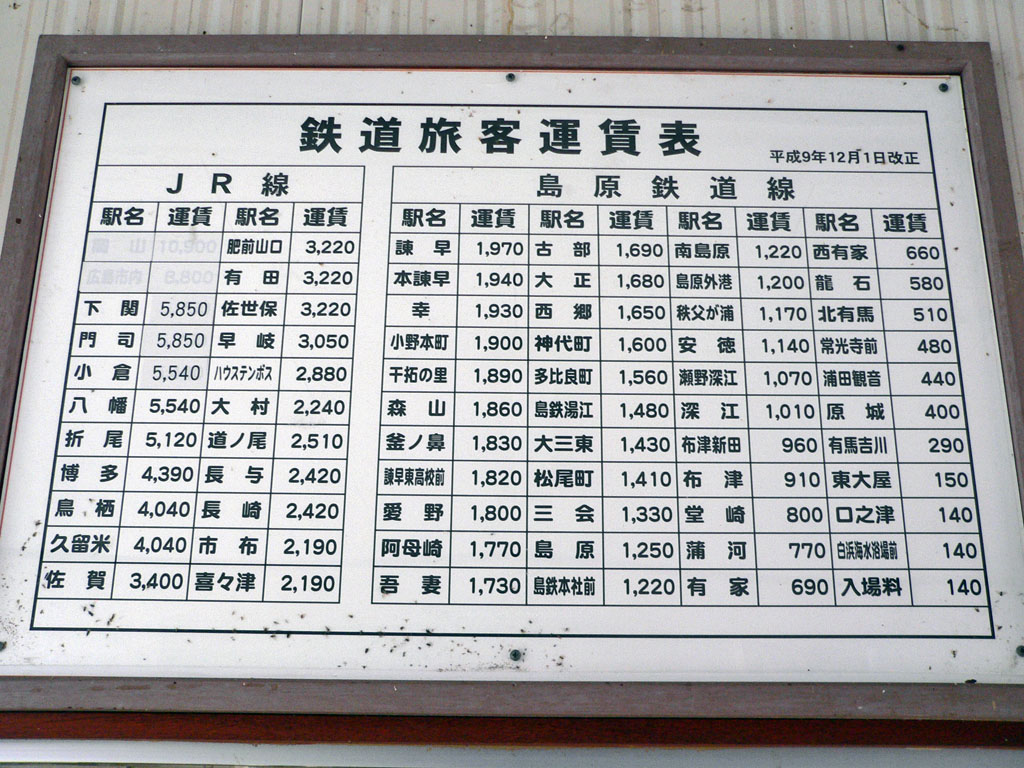 鉄道旅客運賃表
平成9年12月1日改正
JR線
駅名 運賃 駅名 運賃
岡山 10,900 肥前山口 3,220
広島市内 8,800 有田 3,220
下関 5,850 佐世保 3,220
門司 5,850 早岐 3,050
小倉 5,540 ハウステンボス 2,880
八幡 5,540 大村 2,240
折尾 5,120 道ノ尾 2,510
博多 4,390 長与 2,420
鳥栖 4,040 長崎 2,420
久留米 4,040 市布 2,190
佐賀 3,400 喜々津 2,190
島原鉄道線
駅名 運賃 駅名 運賃 駅名 運賃 駅名 運賃
諫早 1,970 古部 1,690 南島原 1,220 西有家 660
本諫早 1,940 大正 1,680 島原外港 1,200 龍石 580
幸 1,930 西郷 1,650 秩父が浦 1,170 北有馬 510
小野本町 1,900 神代町 1,600 安徳 1,140 常光寺前 480
干拓の里 1,890 多比良町 1,560 瀬野深江 1,070 浦田観音 440
森山 1,860 島鉄湯江 1,480 深江 1,010 原城 400
釜ノ鼻 1,830 大三東 1,430 布津新田 960 有馬吉川 290
諫早東高校前 1,820 松尾町 1,410 布津 910 東大屋 150
愛野 1,800 三会 1,330 堂崎 800 口之津 140
阿母崎 1,770 島原 1,250 蒲河 770 白浜海水浴場前 140
吾妻 1,730 島鉄本社前 1,220 有家 690 入場料 140